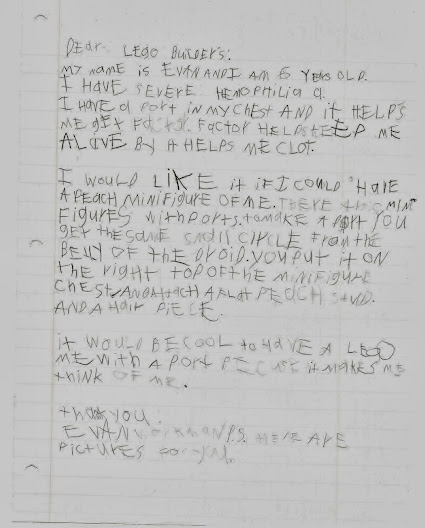 Dear Lego Builders:
My name is EVAN AND I AM 6 Years OLD.
I HAVE SEVERE HEMOPHILIA a.
I HAVE a port in my CHEST AND it HELPS
ME get Factor. Factor HELPS KEEP ME
ALIVE By A HELPS ME CLOT.
I WOULD LIKE it iF I COULD HAVE
A PEACH MINIFIGURE OF ME. THERE are no MINI
FIGURES with PORTS. to MAKE A PORT YOU
GET the SAME small CIRCLE From the
BELLY OF the DROID. YOU PUT it ON
the right top OF the MINIFIGURE
CHEST AND Attach A FLAT PEACH STUD.
AND A HAIR PIECE.
it WOULD BE COOL to HAVE A LEGO
ME With A PORT BECUSE it MAKES ME
think OF ME.
thank YOU.
EVAN P.S. HERE ARE
PICTURES